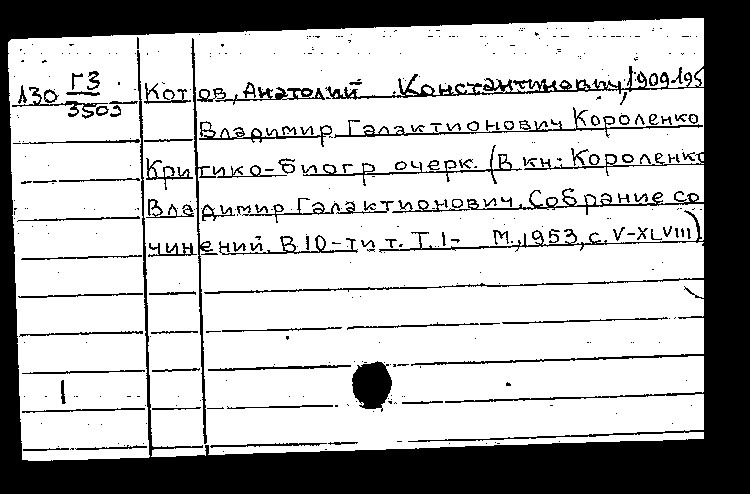 130 Г3/3503 Котов, Анатолий Константинович, 1909-195
Владимир Галактионович Короленко
Критико-биогр очерк. (В кн: Короленко
Владимир Галактионович. Собрание со
чинений. В 10-ти т. Т. 1- М., 1953, с. V-XLVIII)
1